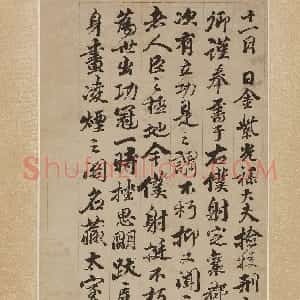 十一月 日金紫光祿大夫檢校刑
卿謹奉書于右僕射定襄郡
次有立功是之謂不朽抑又聞
者人臣之極地今僕射挺不朽
為世出功冠一時挫思明跋
身畫凌煙之閣名藏太室